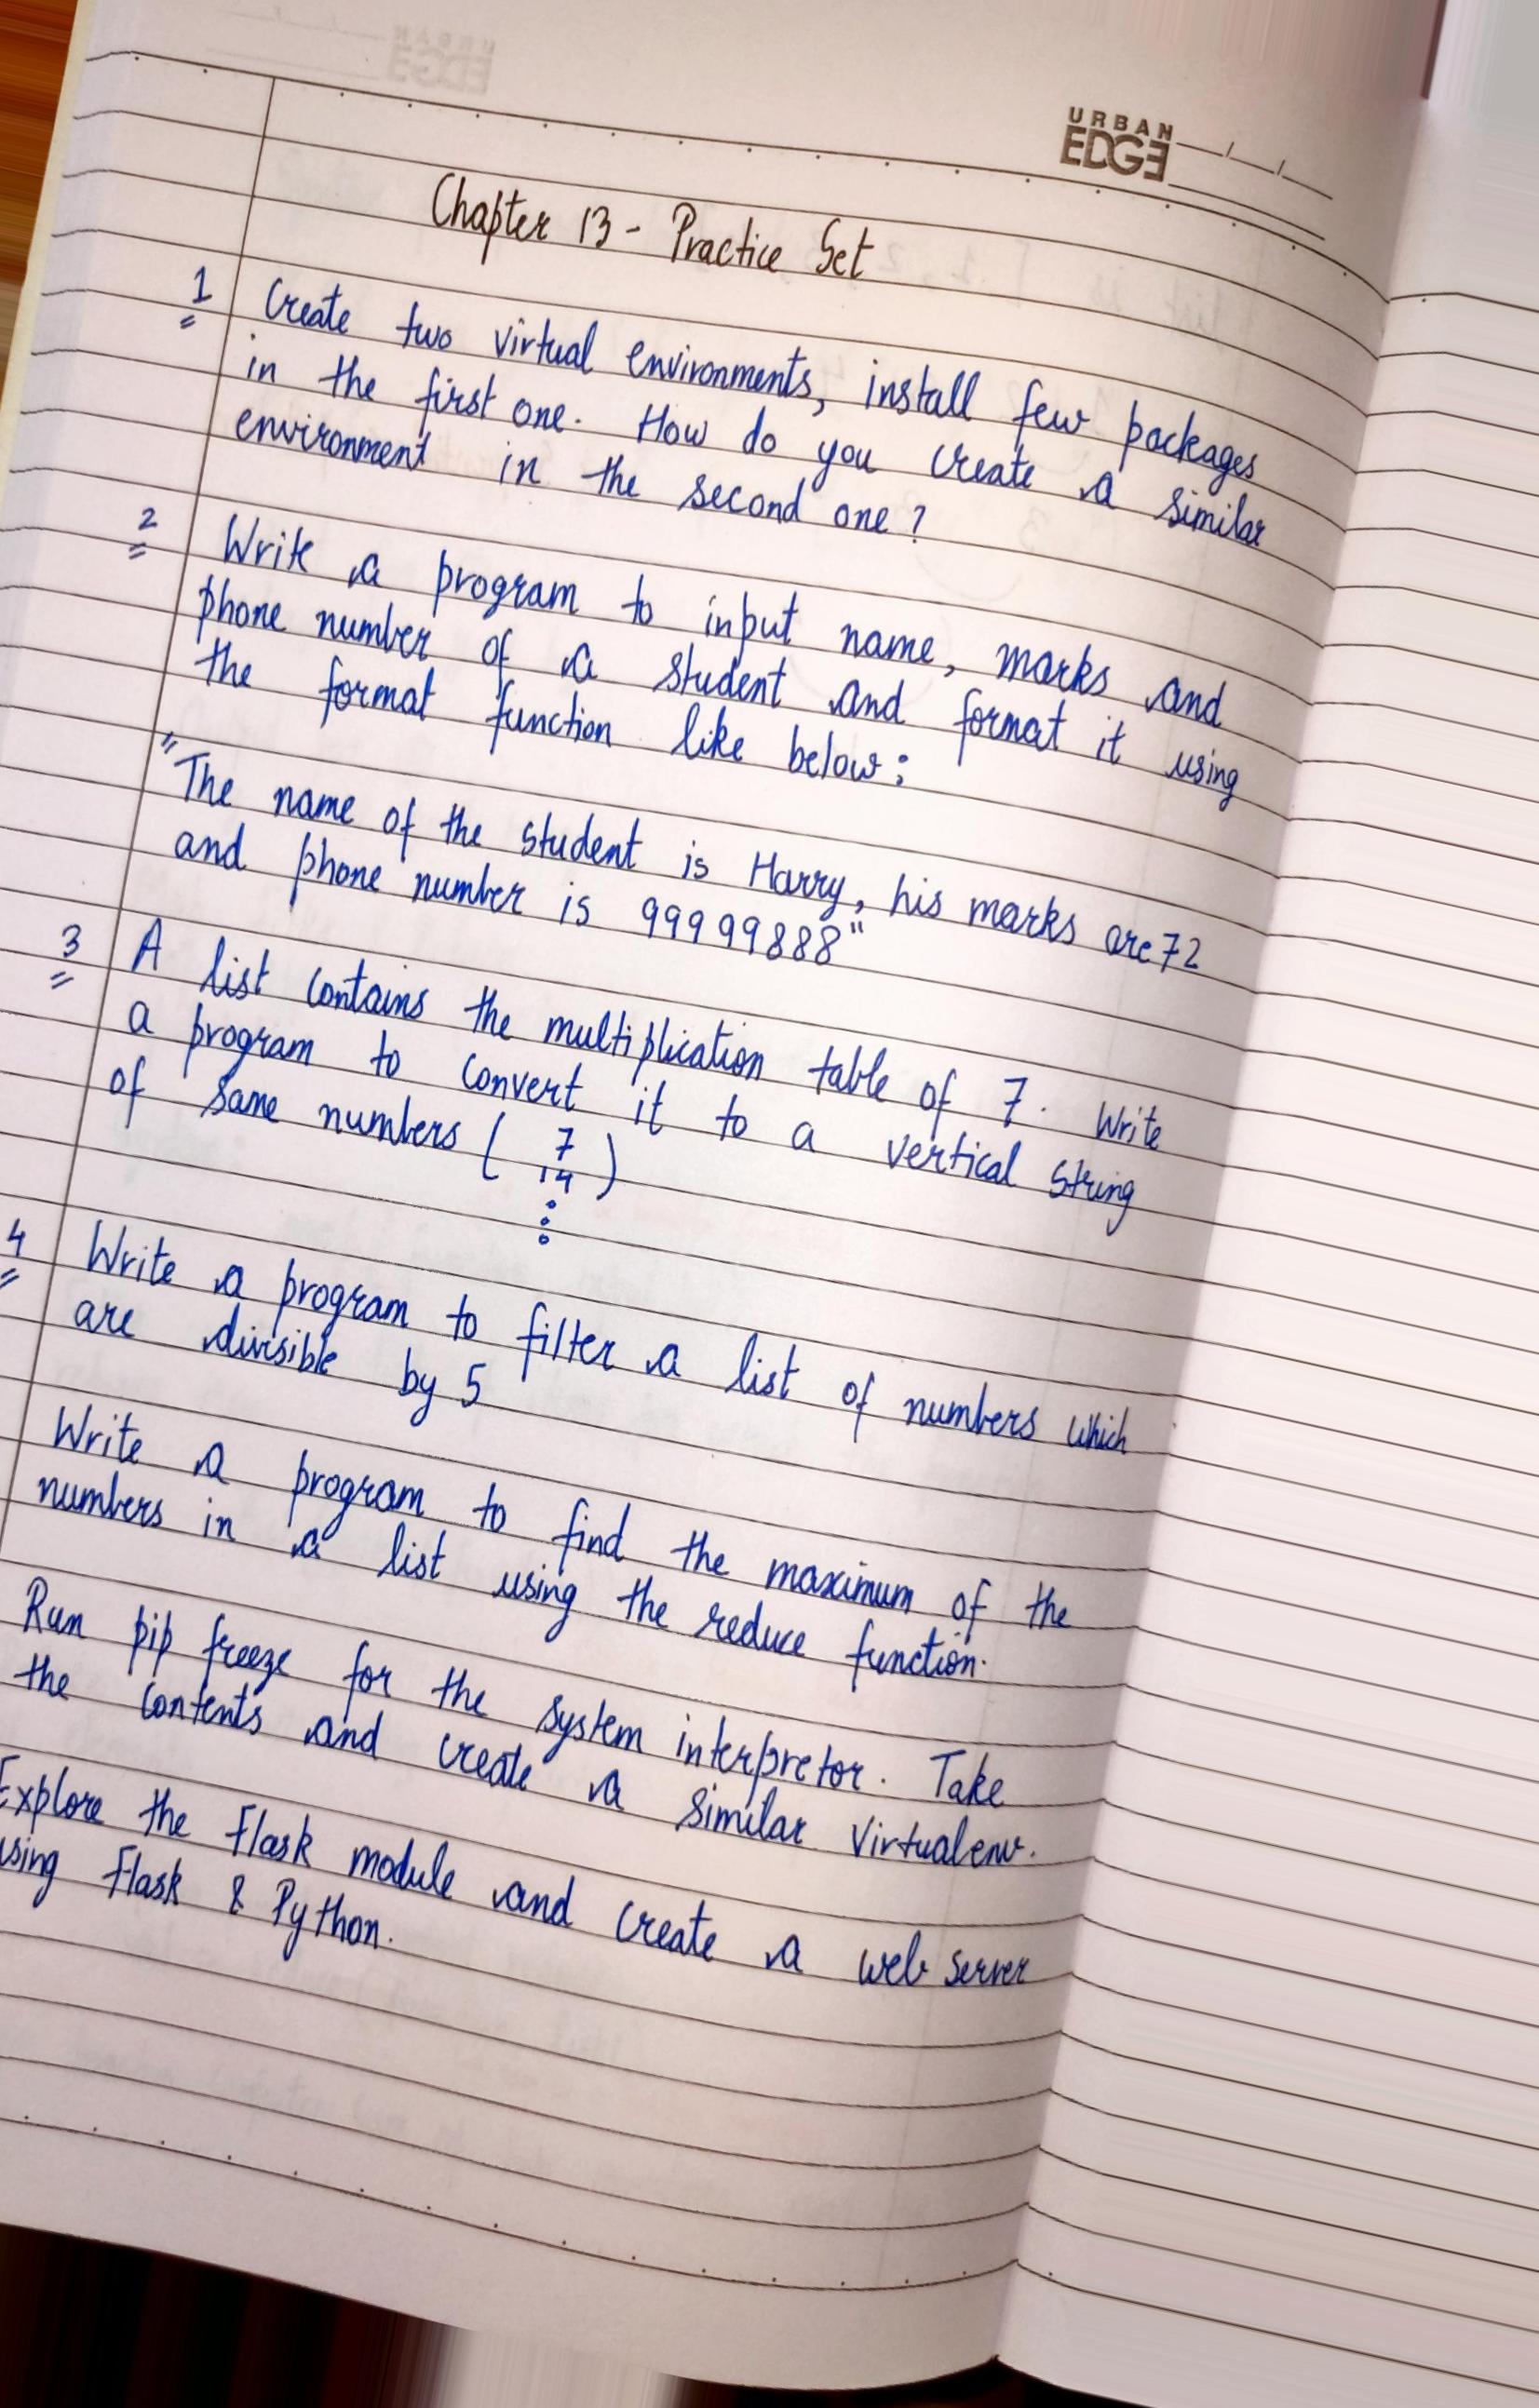 URBAN
EDGE
Chapter 13 - Practice Set
1 Create two virtual environments, install few packages
in the first one. How do you create a similar
environment in the second one?
2 Write a program to input name, marks and
phone number of a student and format it using
the format function like below:
"The name of the student is Harry, his marks are 72
and phone number is 99999888"
3 A list contains the multiplication table of 7. Write
a program to convert it to a vertical string
of same numbers ( 7
14 )
⋮
4 Write a program to filter a list of numbers which
are divisible by 5
Write a program to find the maximum of the
numbers in a list using the reduce function.
Run pip freeze for the system interpretor. Take
the contents and create a similar virtualenv.
Explore the Flask module and create a web server
using Flask & Python.